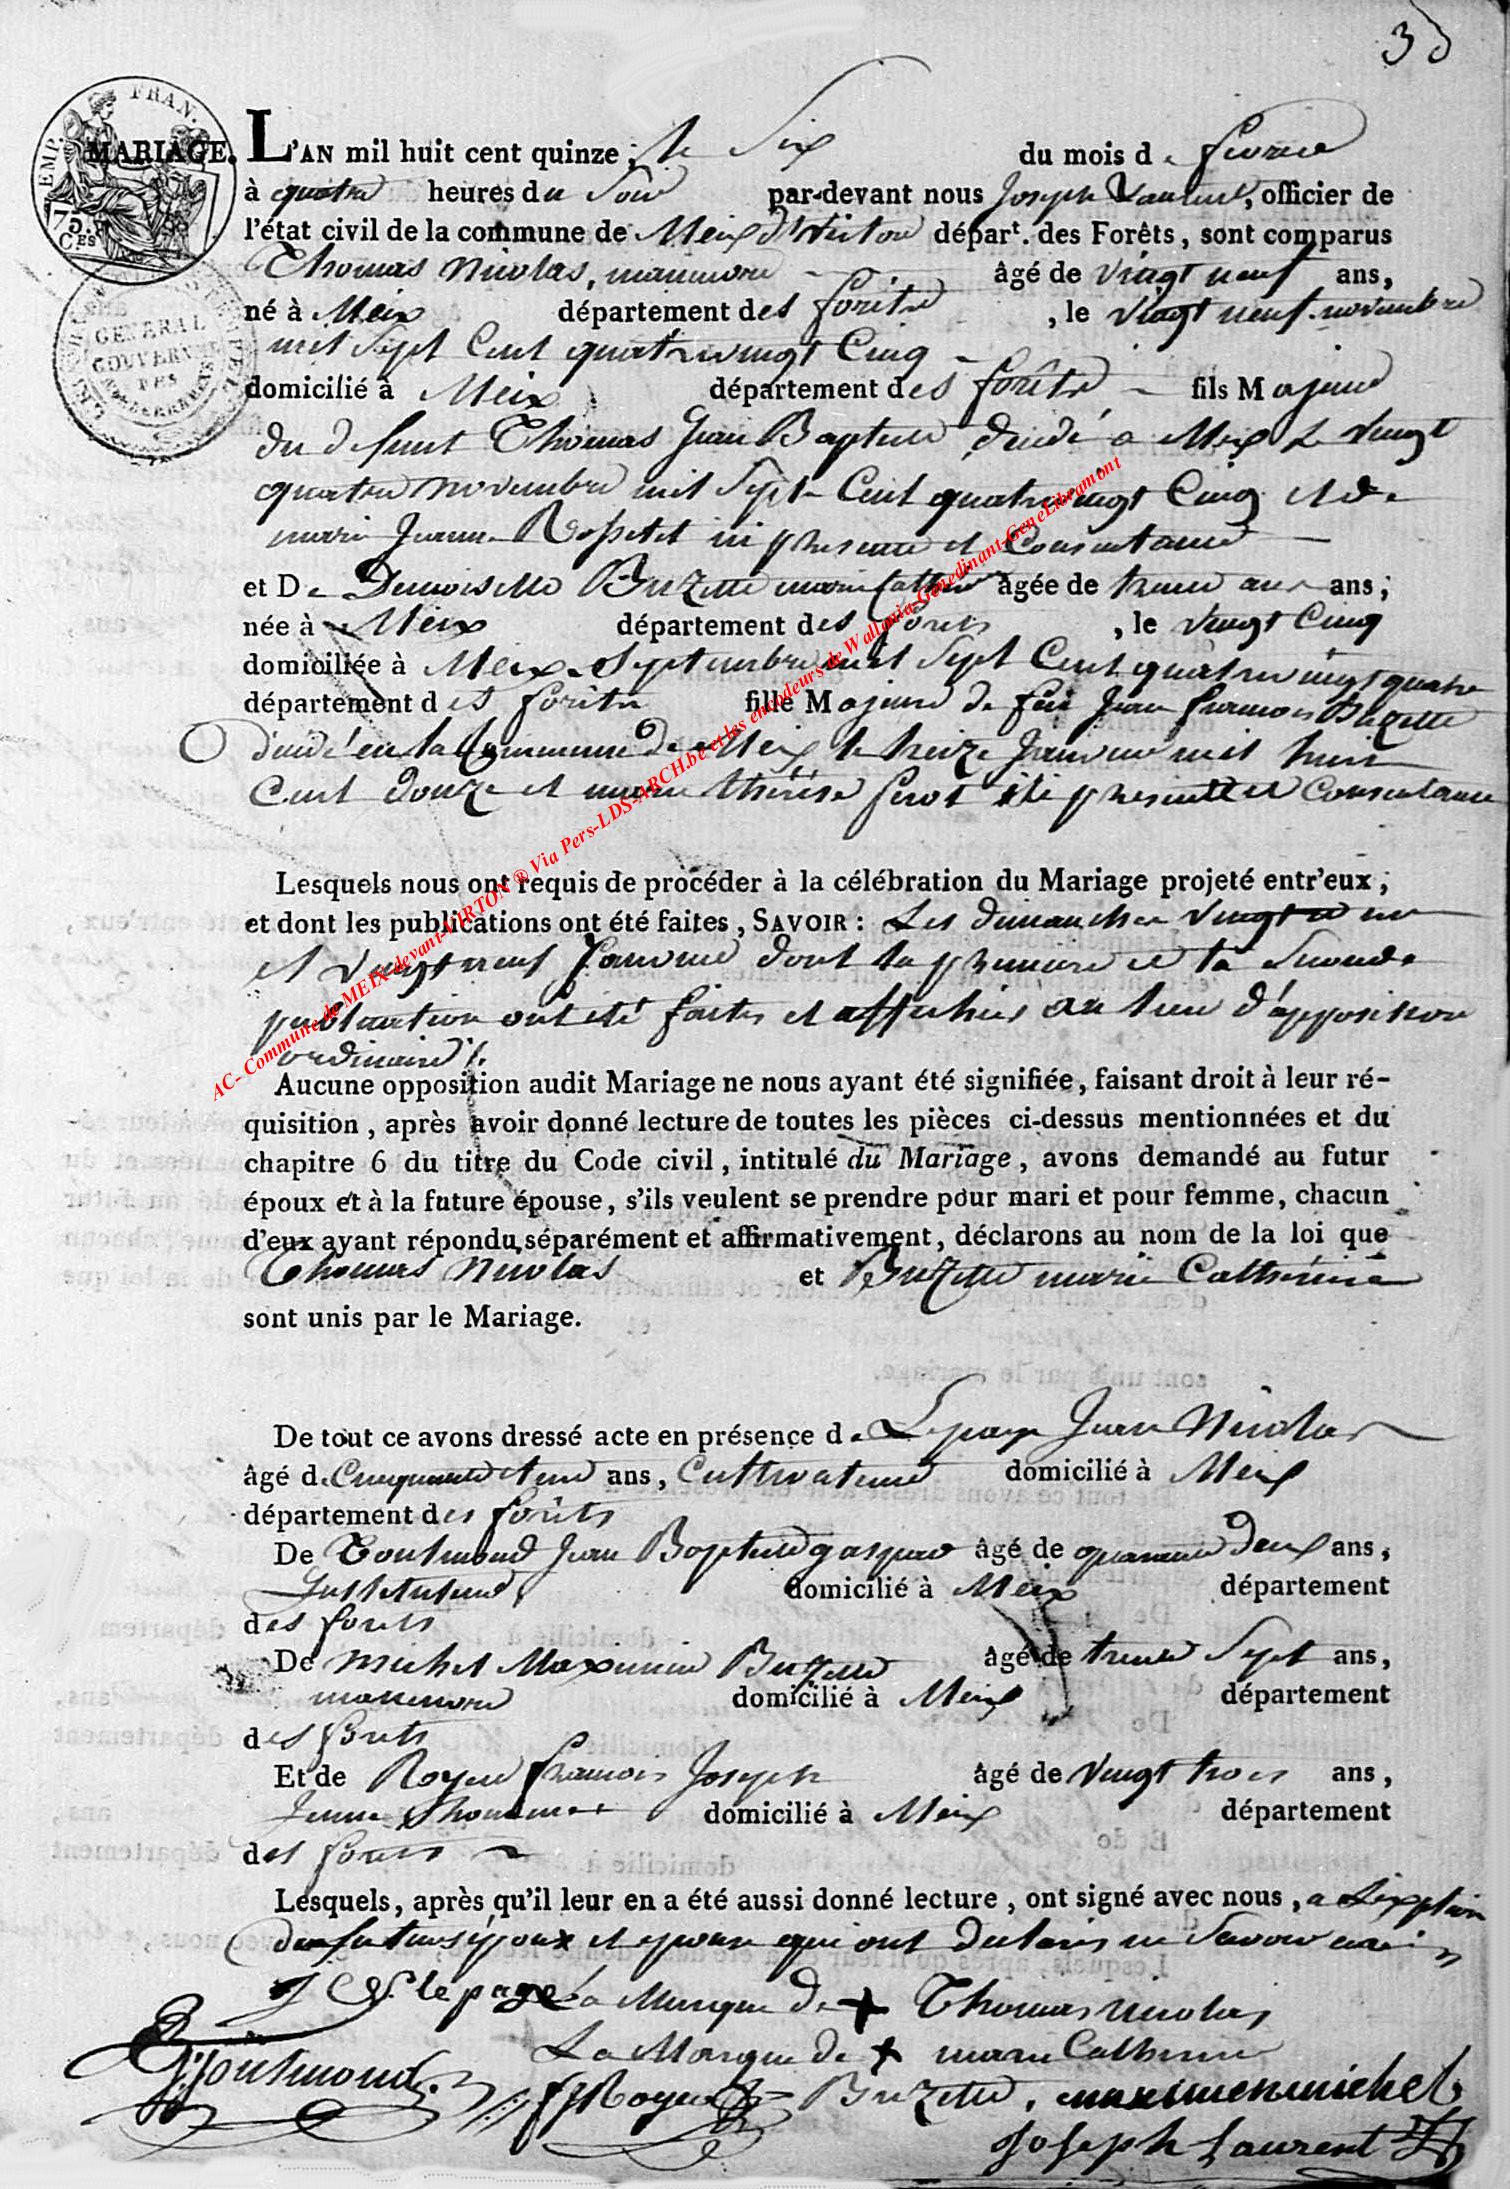 35
EMP. FRAN.
75.
C.ES
GENERAL
GOUVERN
DES
MARIAGE. L'AN mil huit cent quinze, le Six du mois de fevrier
à quatre heures du Soir par-devant nous Joseph Laurent, officier de
l'état civil de la commune de Meix dt Virton dépar.t des Forêts, sont comparus
Thomas Nicolas, manuvre âgé de vingt neuf ans,
né à Meix département des forêts, le vingt neuf novembre
mil Sept Cent quatre vingt Cinq
domicilié à Meix département des forêts fils Majeur
du defunt Thomas Jean Baptiste décédé a Meix le vingt
quatre novembre mil Sept Cent quatre vingt Cinq et de
marie Jeanne Rossetet ici presente et Consentante
et De Demoiselle Buzette marie Catherine âgée de trente ans ans;
née à Meix département des forets, le vingt Cinq
domiciliée à Meix Septembre mil Sept Cent quatre vingt quatre
département des forêts fille Majeure de feu Jean francois Buzette
décédé en la Commune de Meix le treize Janvier mil huit
Cent douze et marie thérèse ici presente et Consentante
Lesquels nous ont requis de procéder à la célébration du Mariage projeté entr'eux,
et dont les publications ont été faites, SAVOIR: Les dimanches vingt
et vingt neuf Janvier dont la premiere et la seconde
publication ont été faites et affichées au lieu d'apposition
ordinaire
Aucune opposition audit Mariage ne nous ayant été signifiée, faisant droit à leur ré-
quisition, après avoir donné lecture de toutes les pièces ci-dessus mentionnées et du
chapitre 6 du titre du Code civil, intitulé du Mariage, avons demandé au futur
époux et à la future épouse, s'ils veulent se prendre pour mari et pour femme, chacun
d'eux ayant répondu séparément et affirmativement, déclarons au nom de la loi que
Thomas Nicolas et Buzette marie Catherine
sont unis par le Mariage.
De tout ce avons dressé acte en présence de Lepage Jean Nicolas
âgé de Cinquante et un ans, Cultivateur domicilié à Meix
département des forêts
De Toutmond Jean Baptiste gaspar âgé de quarante Deux ans,
Instituteur domicilié à Meix département
des forets
De michel Maximin Buzette âgé de trente Sept ans,
manuvre domicilié à Meix département
des forets
Et de Royer francois Joseph âgé de vingt trois ans,
Jeune homme domicilié à Meix département
des forets
Lesquels, après qu'il leur en a été aussi donné lecture, ont signé avec nous, a
des futurs époux et epouse qui ont declarés ne Savoir
le page La Marque de + Thomas nicolas
La Marque de + marie Catherine
Toutmond. Royer Buzette, maximen michel
Joseph Laurent
AC- Commune de MEIX devant-VIRTON ® Via Pers-LDS-ARCH.be et les encodeurs de Wallonia-Genedinant-GeneLibramont